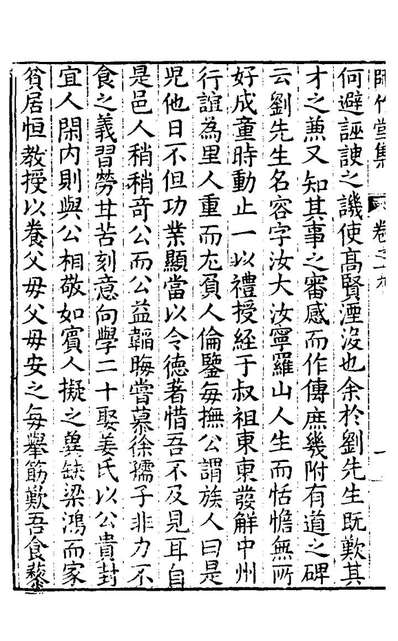 師竹堂集 卷之十九
何避誣諛之譏使高賢湮沒也余於劉先生既歎其
才之蕪又知其事之審感而作傳庶幾附有道之碑
云劉先生名容字汝大汝寧羅山人生而恬憺無所
好成童時動止一以禮授經于叔祖東東發解中州
行誼為里人重而尤負人倫鑒每撫公謂族人曰是
兒他日不但功業顯當以令德著惜吾不及見耳自
是邑人稍稍奇公而公益韜晦嘗慕徐孺子非力不
食之義習勞甘苦刻意向學二十娶姜氏以公貴封
宜人閑內則與公相敬如賓人擬之兾缺梁鴻而家
貧居恒教授以養父母父母安之每舉筯歎吾食藜